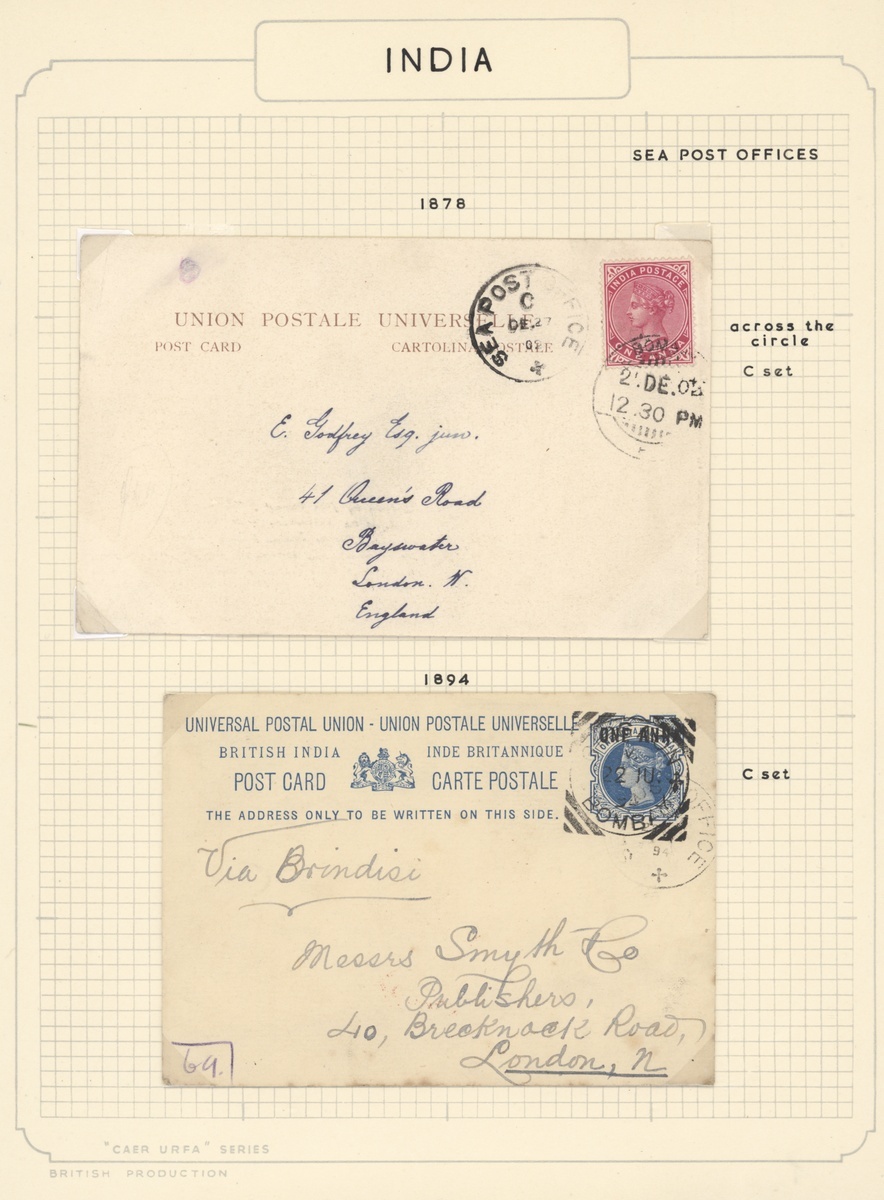 INDIA
SEA POST OFFICES
1878
UNION POSTALE UNIVERSELLE
POST CARD CARTOLINA POSTALE
SEA POST OFFICE
C
DE.27
02
INDIA POSTAGE
ONE ANNA
DE.02
12.30 PM
across the
circle
C set
E. Godfrey Esq. jun.
41 Queen's Road
Bayswater
London. W.
England
1894
UNIVERSAL POSTAL UNION - UNION POSTALE UNIVERSELLE
BRITISH INDIA INDE BRITANNIQUE
POST CARD CARTE POSTALE
THE ADDRESS ONLY TO BE WRITTEN ON THIS SIDE.
ONE ANNA
22 JU
BOMBAY
OFFICE
94
C set
Via Brindisi
Messrs Smyth & Co
Publishers,
40, Brecknock Road,
London, N
69.
"CAER URFA" SERIES
BRITISH PRODUCTION